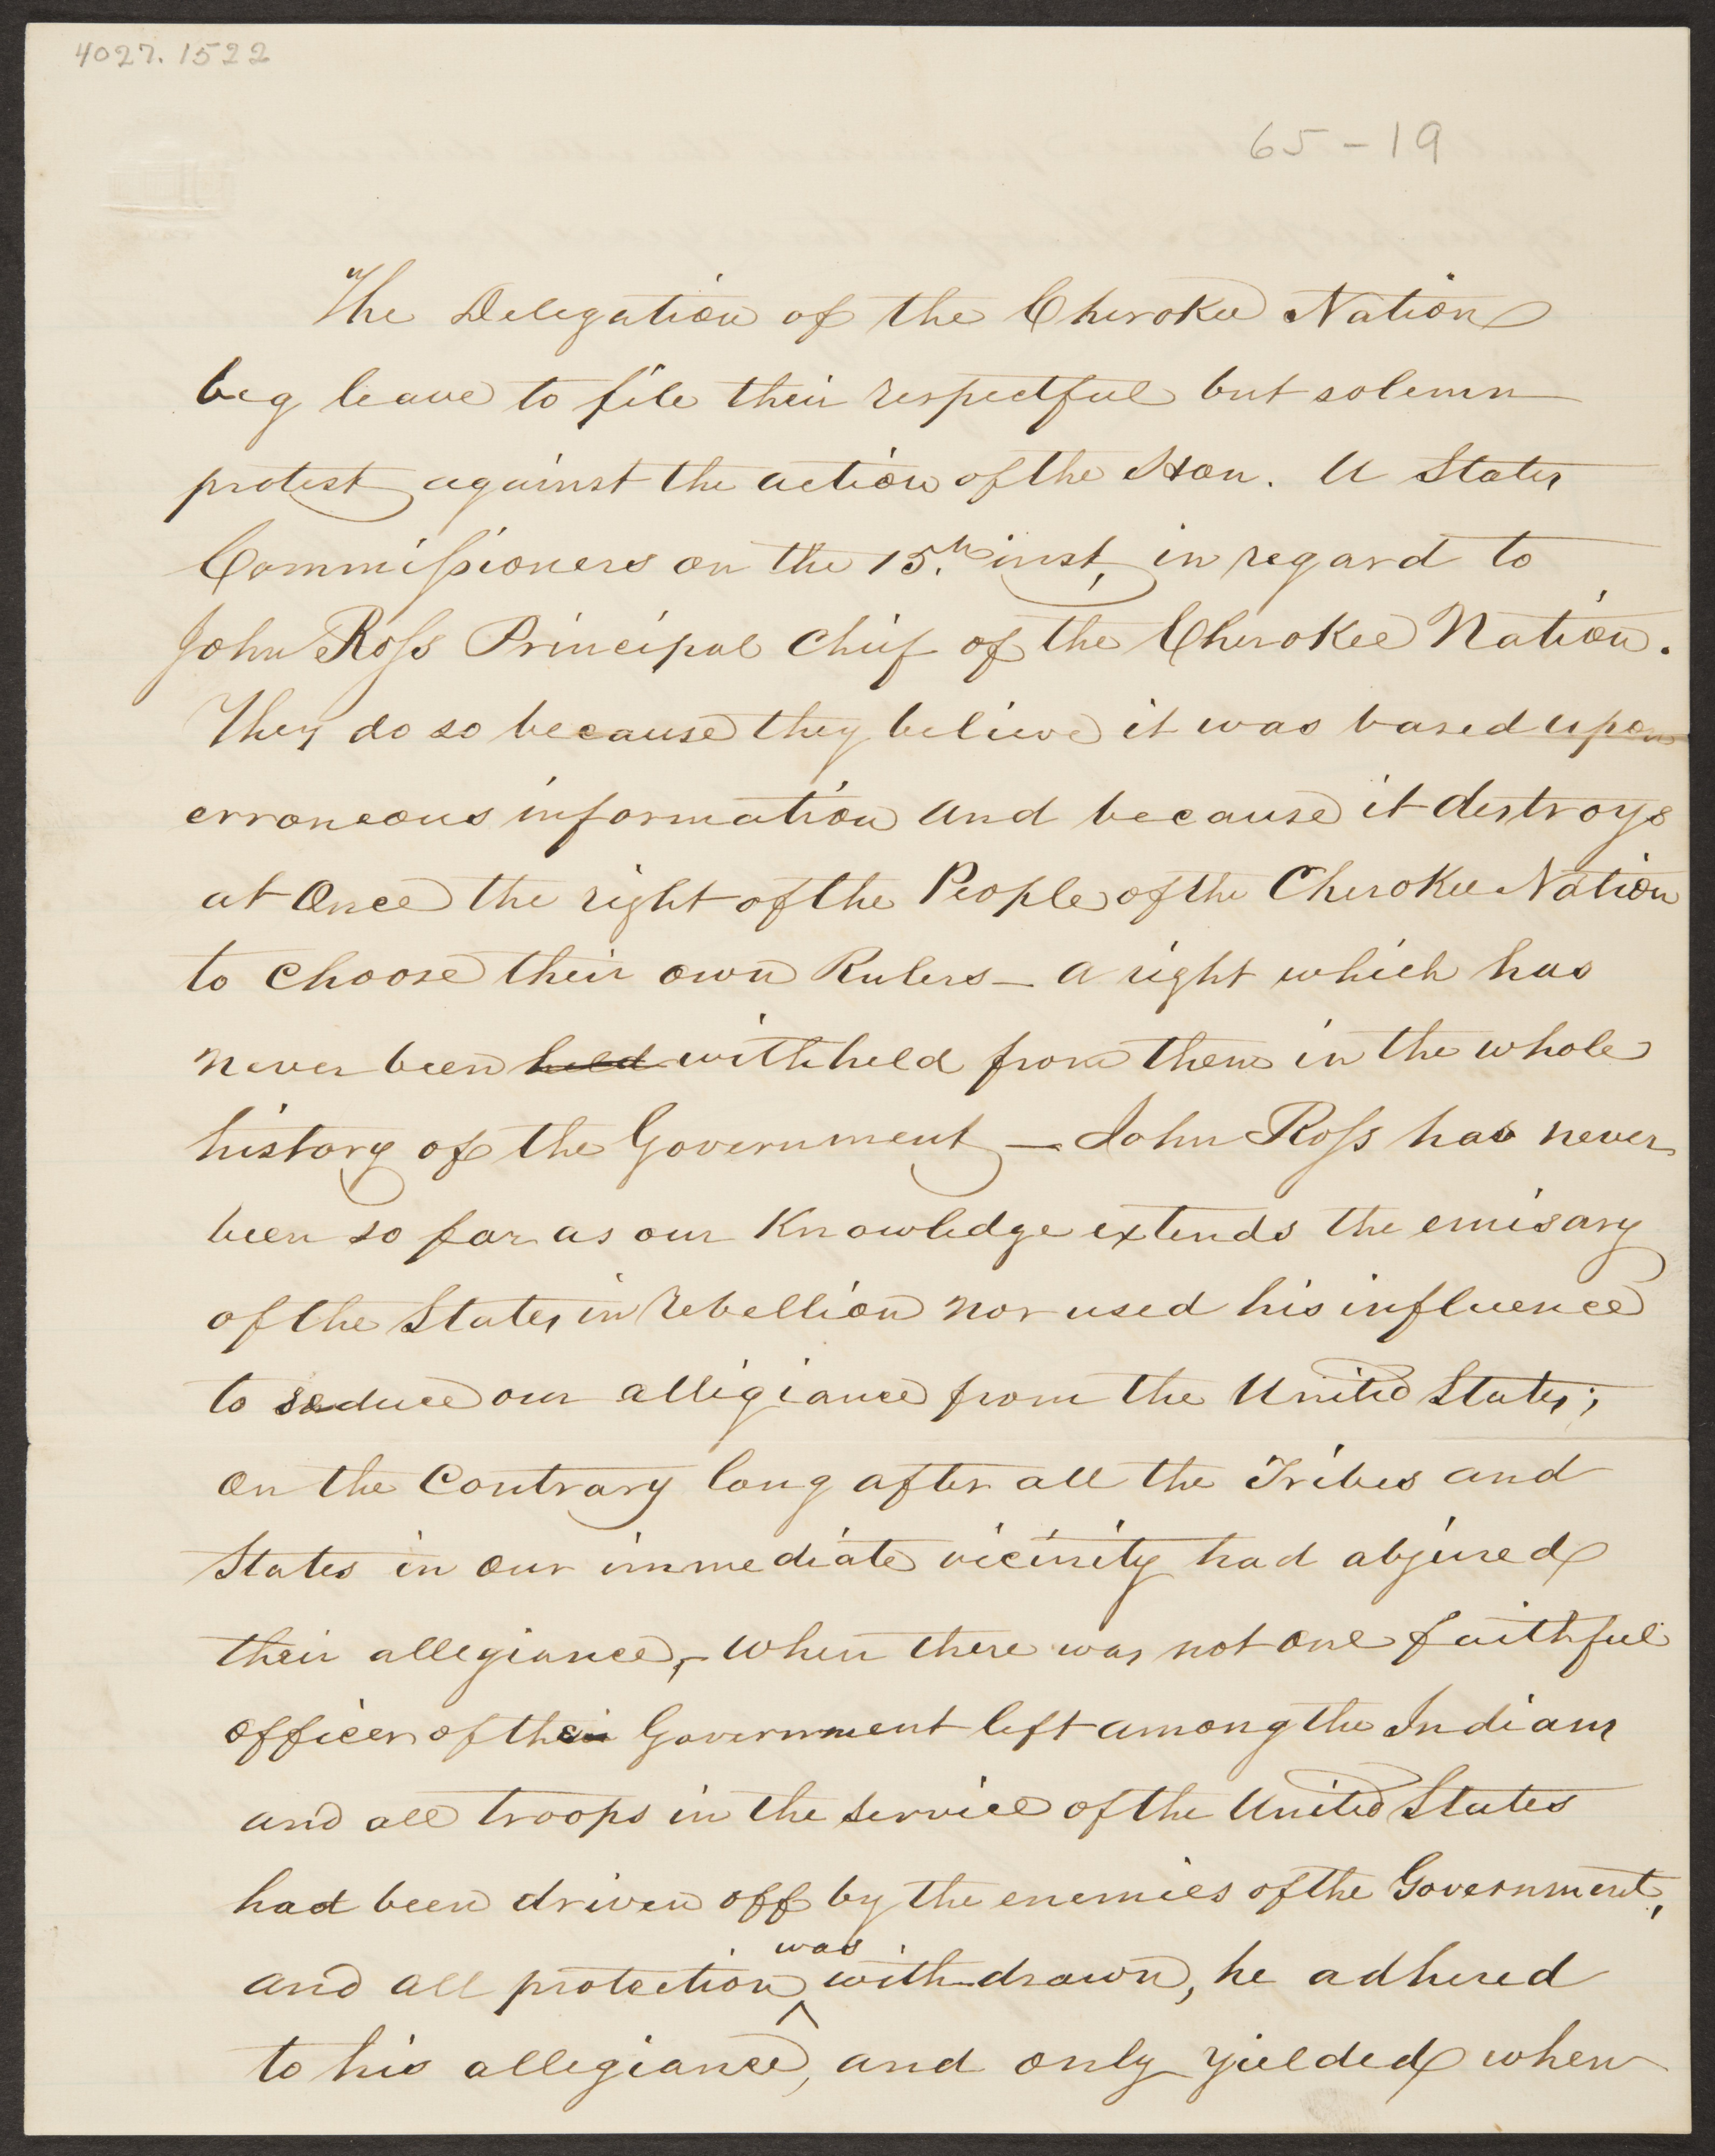 4027.1522
65-19
The Delegation of the Cherokee Nation
beg leave to file their respectful but solemn
protest against the action of the Hon. U States
Commissioners on the 15th. inst, in regard to
John Ross Principal Chief of the Cherokee Nation.
They do so because they believe it was based upon
erroneous information and because it destroys
at once the right of the People of the Cherokee Nation
to choose their own Rulers - a right which has
never been held withheld from them in the whole
history of the Government - John Ross has never
been so far as our Knowledge extends the emisary
of the States in rebellion nor used his influence
to seduce our alligiance from the United States;
on the Contrary long after all the Tribes and
States in our immediate vicinity had abjured
their allegiance, - when there was not one faithful
officer of their Government left among the Indians
and all troops in the service of the United States
had been driven off by the enemies of the Government,
and all protection was withdrawn, he adhered
to his allegiance, and only yielded when